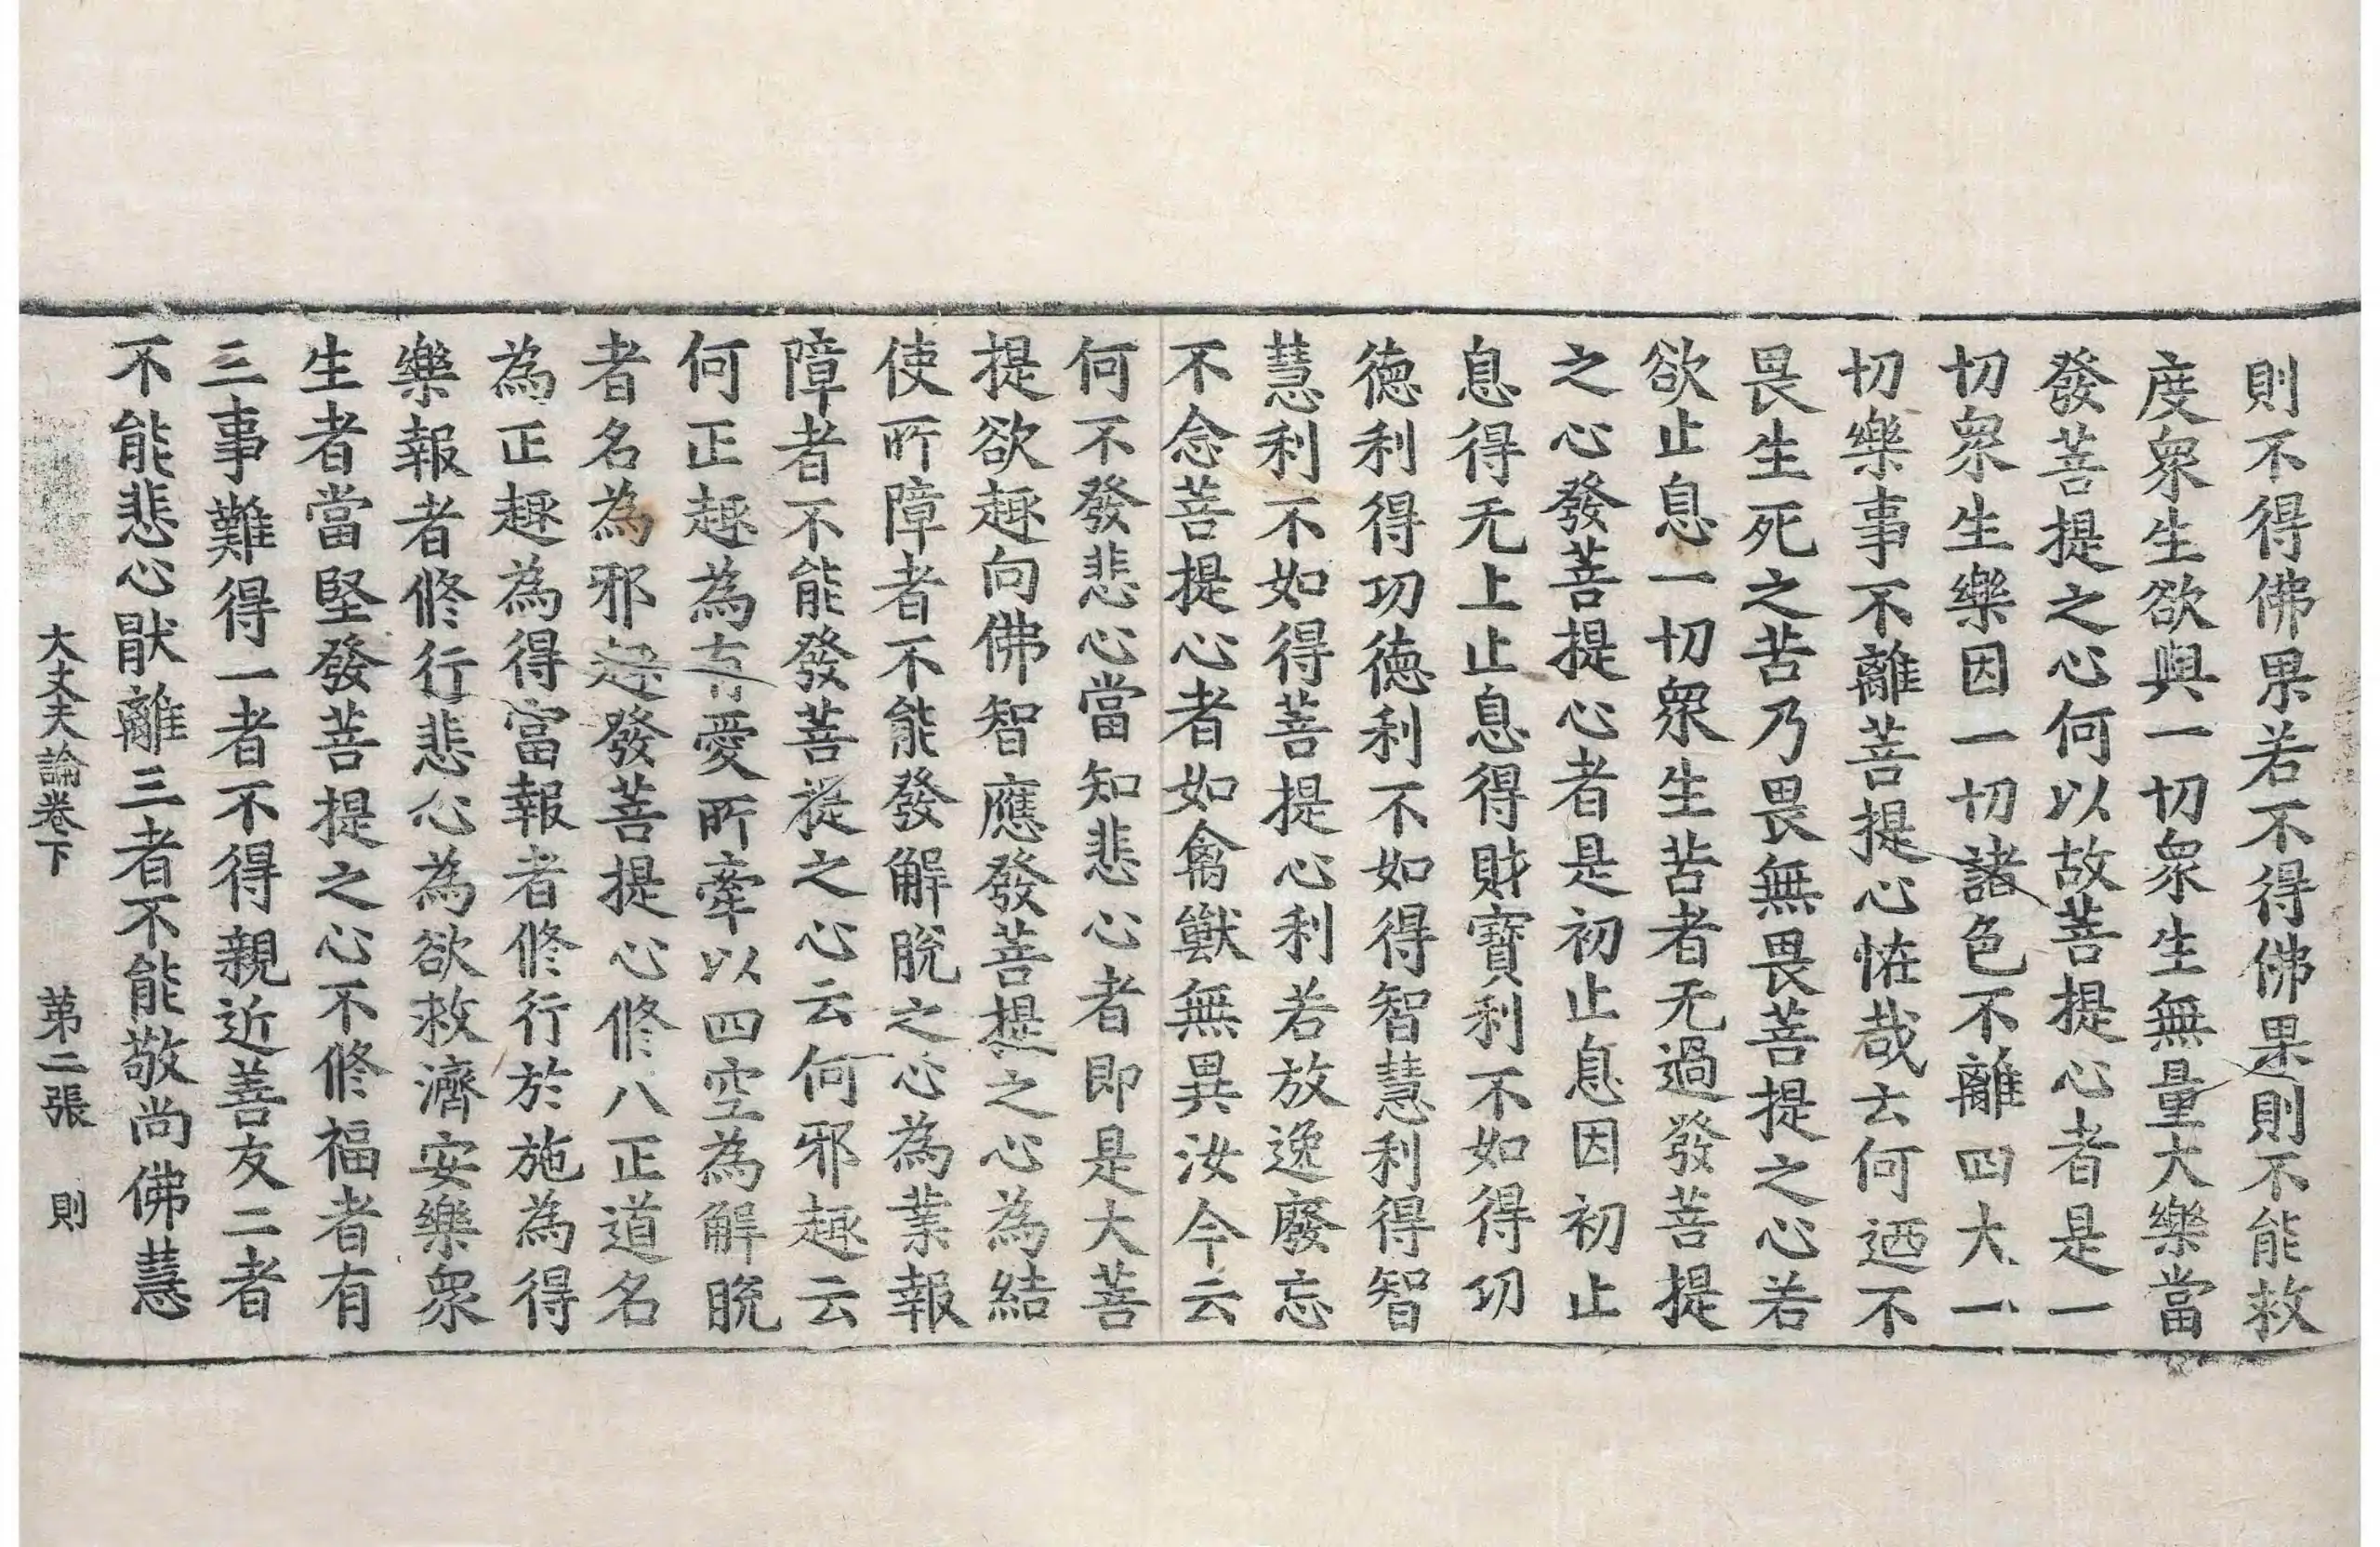 則不得佛果若不得佛果則不能救
度衆生欲與一切衆生無量大樂當
發菩提之心何以故菩提心者是一
切衆生樂因一切諸色不離四大一
切樂事不離菩提心恠哉去何迺不
畏生死之苦乃畏無畏菩提之心若
欲止息一切衆生苦者无過發菩提
之心發菩提心者是初止息因初止
息得无上止息得財寶利不如得功
德利得功德利不如得智慧利得智
慧利不如得菩提心利若放逸廢忘
不念菩提心者如禽獸無異汝今云
何不發悲心當知悲心者即是大菩
提欲趣向佛智應發菩提之心為結
使所障者不能發解脫之心為業報
障者不能發菩提之心云何邪趣云
何正趣為有愛所牽以四空為解脫
者名為邪趣發菩提心修八正道名
為正趣為得富報者修行於施為得
樂報者修行悲心為欲救濟安樂衆
生者當堅發菩提之心不修福者有
三事難得一者不得親近善友二者
不能悲心猒離三者不能敬尚佛慧
大丈夫論卷下 第二張 則